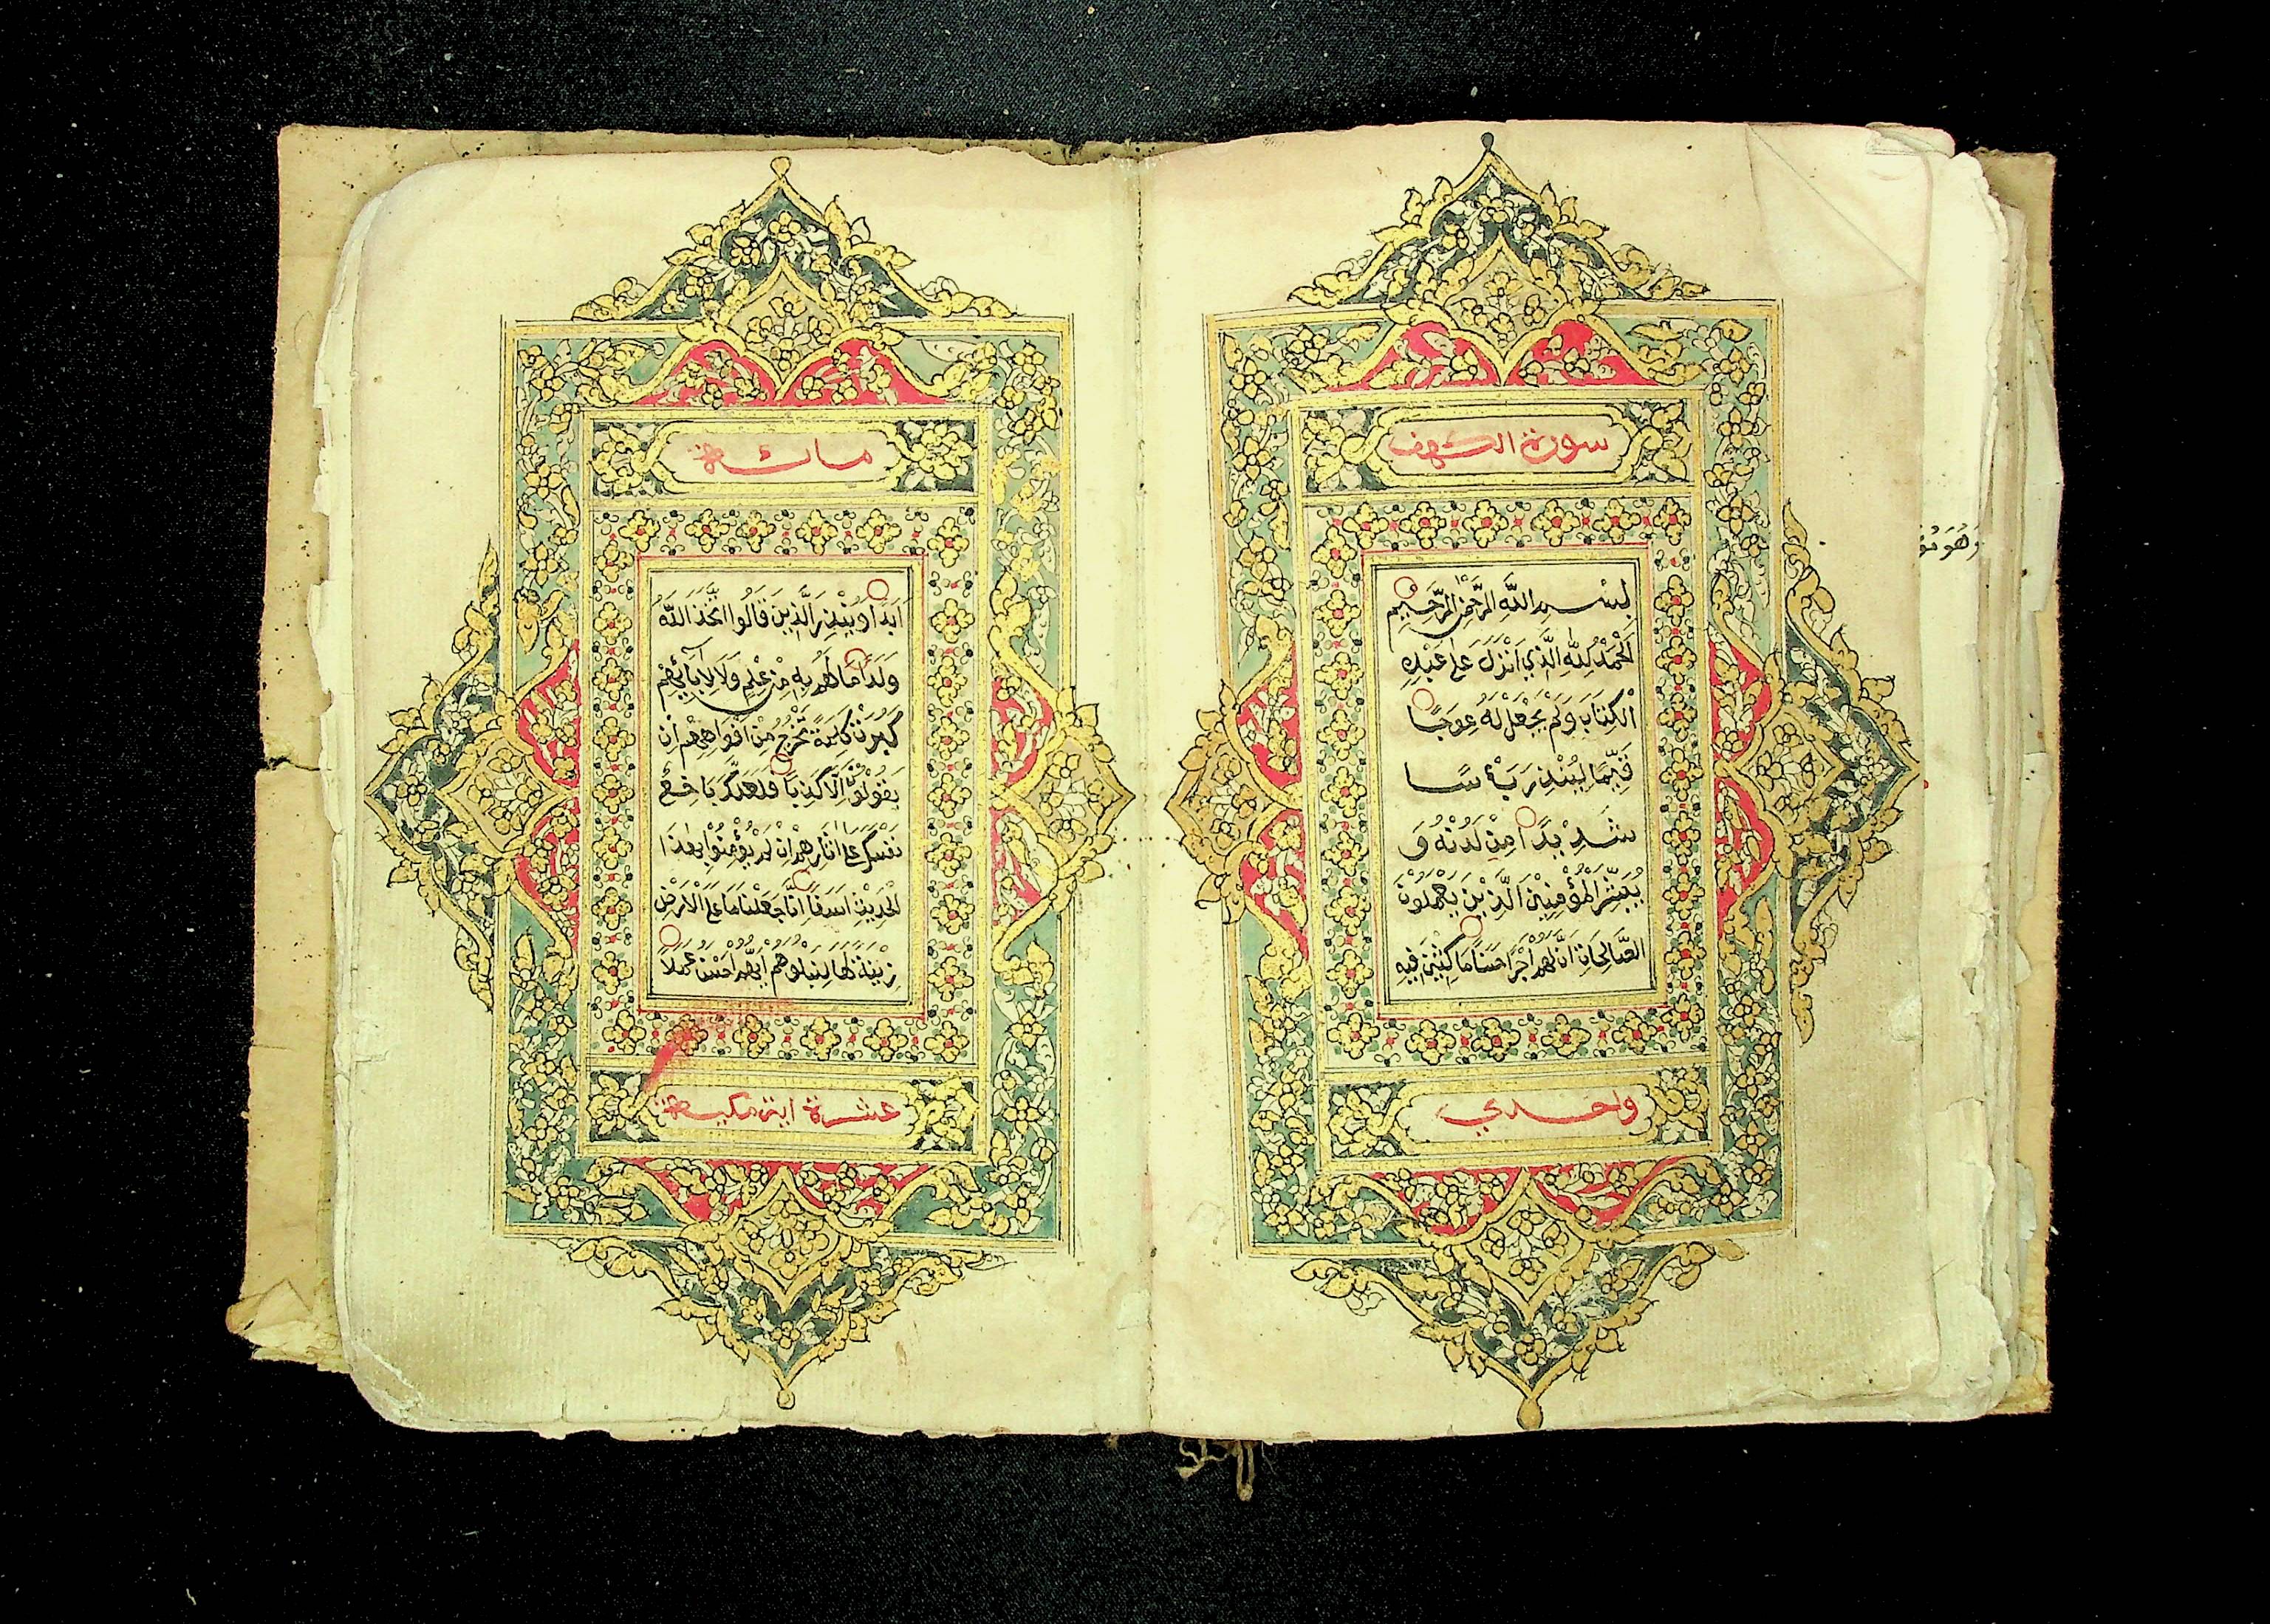 سورة الكهف
بِسْمِ اللَّهِ الرَّحْمٰنِ الرَّحِيْمِ
اَلْحَمْدُ لِلّٰهِ الَّذِي اَنْزَلَ عَلٰى عَبْدِهِ
الْكِتَابَ وَلَمْ يَجْعَلْ لَهُ عِوَجًا
قَيِّمًا لِيُنْذِرَ بَأْسًا
شَدِيْدًا مِنْ لَدُنْهُ وَ
يُبَشِّرَ الْمُؤْمِنِيْنَ الَّذِيْنَ يَعْمَلُوْنَ
الصَّالِحَاتِ اَنَّ لَهُمْ اَجْرًا حَسَنًا مَاكِثِيْنَ فِيْهِ
واحدي
مائة
اَبَدًا وَيُنْذِرَ الَّذِيْنَ قَالُوا اتَّخَذَ اللّٰهُ
وَلَدًا مَا لَهُمْ بِهِ مِنْ عِلْمٍ وَلَا لِاٰبَائِهِمْ
كَبُرَتْ كَلِمَةً تَخْرُجُ مِنْ اَفْوَاهِهِمْ اِنْ
يَقُوْلُوْنَ اِلَّا كَذِبًا فَلَعَلَّكَ بَاخِعٌ
نَفْسَكَ عَلٰى اٰثَارِهِمْ اِنْ لَمْ يُؤْمِنُوْا بِهٰذَا
الْحَدِيْثِ اَسَفًا اِنَّا جَعَلْنَا مَا عَلَى الْاَرْضِ
زِيْنَةً لَهَا لِنَبْلُوَهُمْ اَيُّهُمْ اَحْسَنُ عَمَلًا
عشرة اية مكية
وَهُوَ